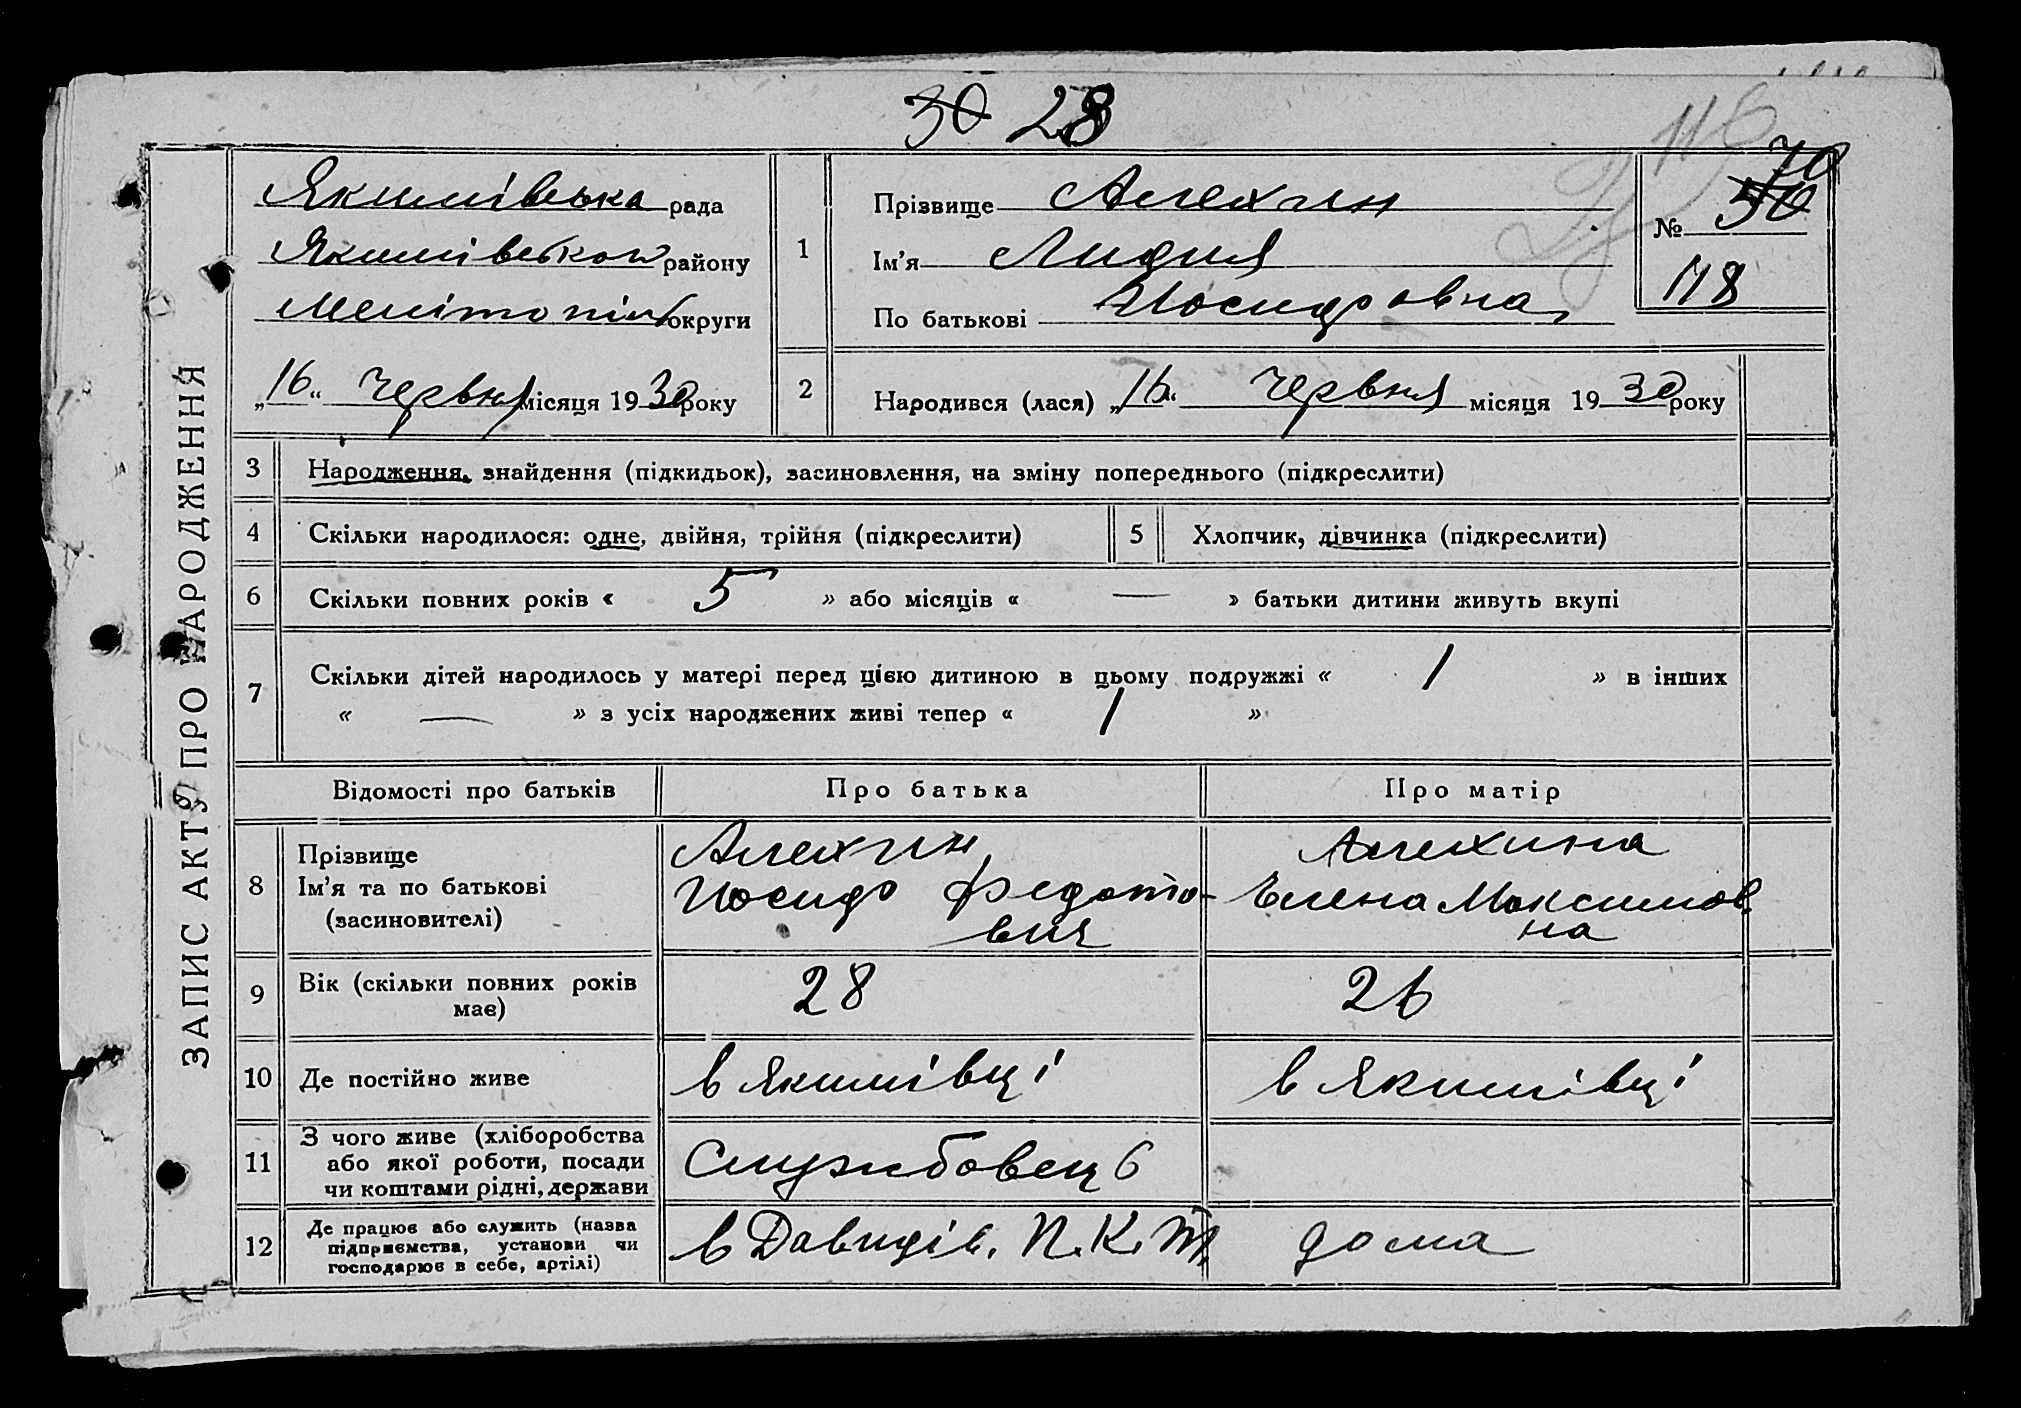 30 28
118
ЗАПИС АКТУ ПРО НАРОДЖЕННЯ
Якимівська рада
Якимівського району
Мелітопіль округи
„16“ Червня місяця 1930 року
1
Прізвище Алехин
Ім’я Лидия
По батькові Иосифовна
70
№ 50
118
2
Народився (лася) „16“ Червня місяця 1930 року
3 Народження, знайдення (підкидьок), засиновлення, на зміну попереднього (підкреслити)
4 Скільки народилося: одне, двійня, трійня (підкреслити) 5 Хлопчик, дівчинка (підкреслити)
6 Скільки повних років « 5 » або місяців « — » батьки дитини живуть вкупі
7 Скільки дітей народилось у матері перед цією дитиною в цьому подружжі « 1 » в інших
« — » з усіх народжених живі тепер « 1 »
Відомості про батьків Про батька Про матір
8
Прізвище
Ім’я та по батькові
(засиновителі)
Алехин
Иосиф Федото-
вич
Алехина
Елена Максимов
на
9 Вік (скільки повних років
має)
28
26
10 Де постійно живе в Якимівці в Якимівці
11
З чого живе (хліборобства
або якої роботи, посади
чи коштами рідні, держави
Службовец 6
12
Де працює або служить (назва
підприємства, установи чи
господарює в себе, артілі)
в Давидів. П.К.Т дома